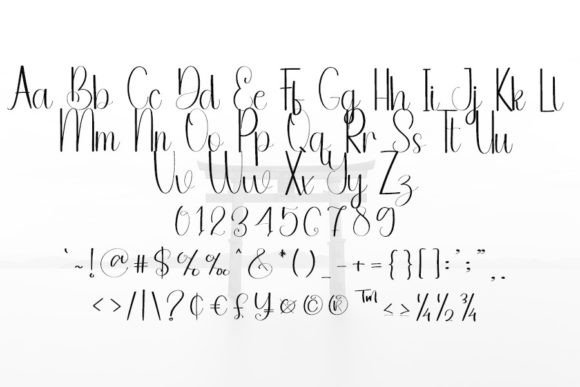 Aa Bb Cc Dd Ee Ff Gg Hh Ii Jj Kk Ll
Mm Nn Oo Pp Qq Rr Ss Tt Uu
Vv Ww Xx Yy Zz
0 1 2 3 4 5 6 7 8 9
` ~ ! @ # $ % ‰ ^ & * ( ) _ - + = { } [ ] : ' ; " , .
< > / | \ ? ¢ € £ ¥ ¤ © ® ™ ≤ ≥ ¼ ½ ¾